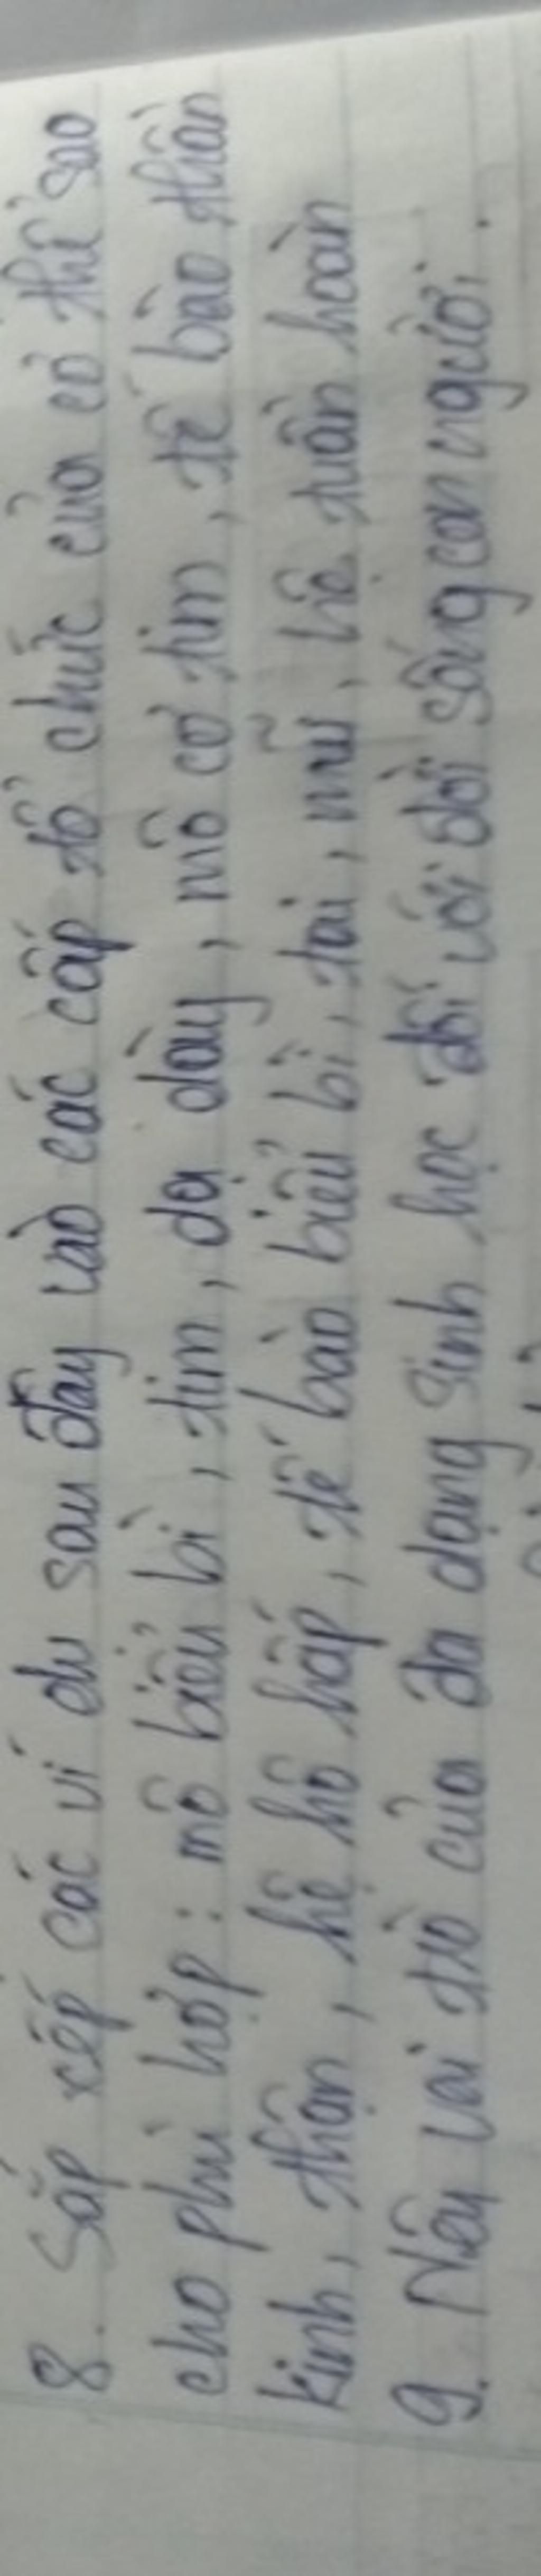 8. Sắp xếp các ví dụ sau đây vào các cấp tổ chức của cơ thể sao
cho phù hợp: mô biểu bì, tim, dạ dày, mô cơ tim, tế bào thần
kinh, thận, hệ hô hấp, tế bào biểu bì, tai, mũi, hệ tuần hoàn
9. Nêu vai trò của đa dạng sinh học đối với đời sống con người.